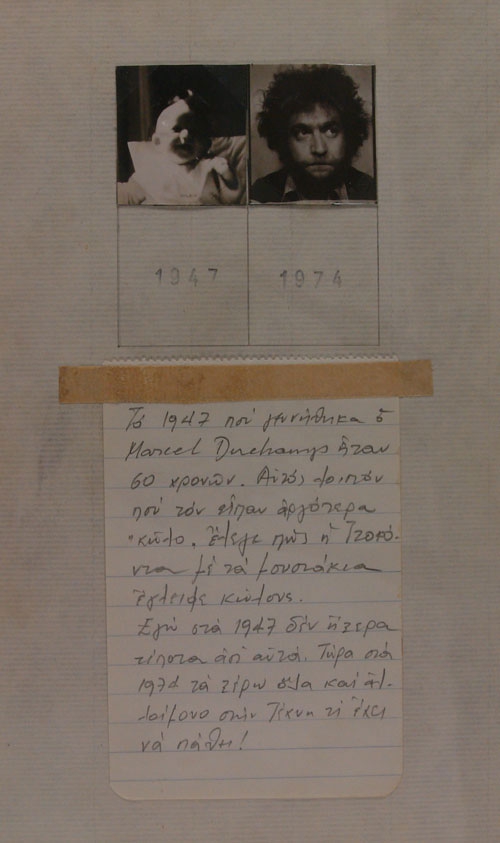 1947 1974
Τό 1947 πού γεννήθηκα ὁ
Marcel Duchamp ἦταν
60 χρονῶν. Αὐτός λοιπόν
πού τόν εἶπαν ἀργότερα
κῶλο. Ἔλεγε πώς ἡ Τζοκό-
ντα μέ τά μουστάκια
ἔγλειφε κώλους.
Ἐγώ στά 1947 δέν ἤξερα
τίποτα ἀπ' αὐτά. Τώρα στά
1974 τά ξέρω ὅλα καί ἀλ-
λοίμονο στήν Τέχνη τί ἔχει
νά πάθει!